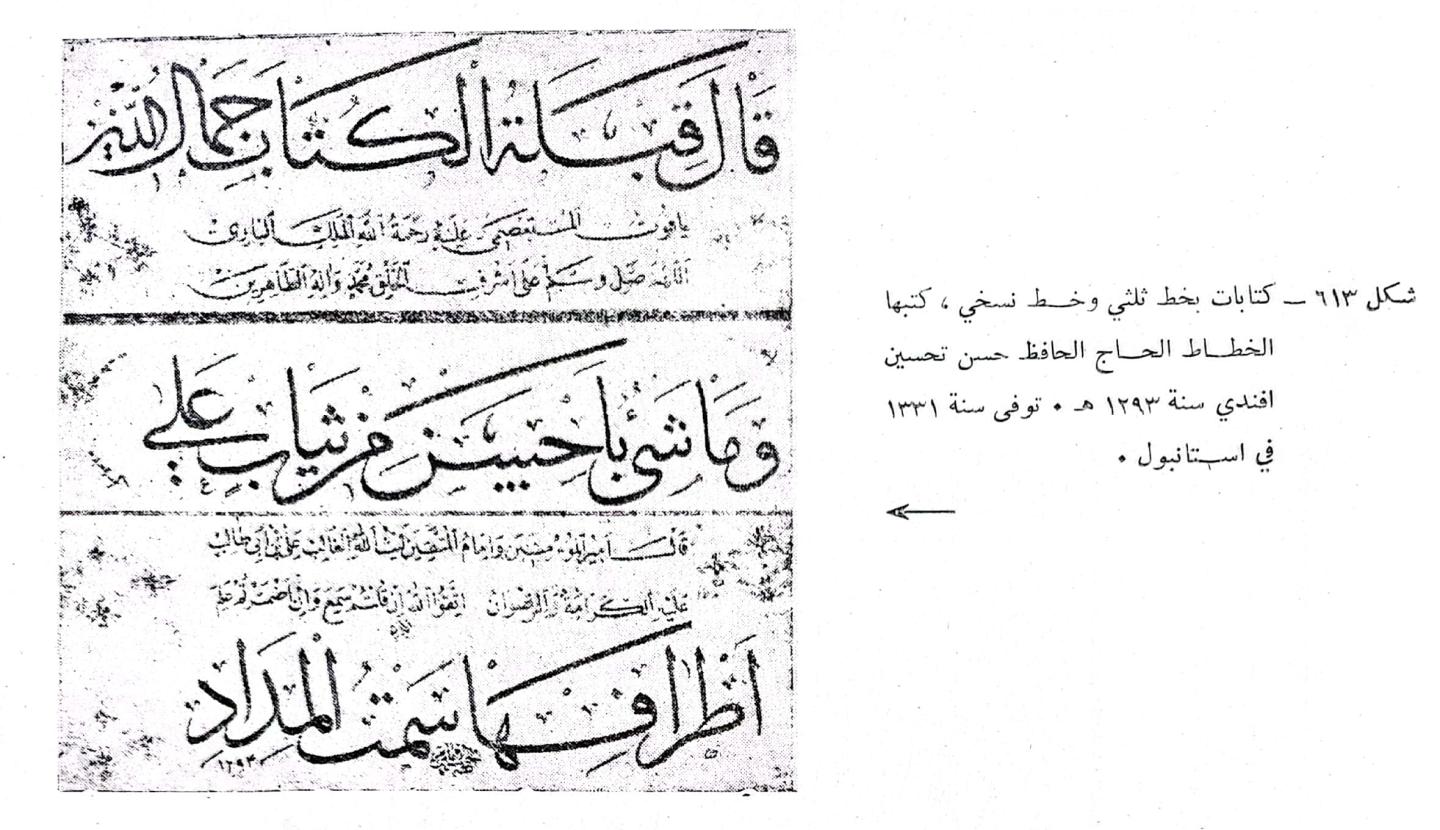 قال قبلة الكتاب جمال الدين
ياقوت المستعصمي عليه رحمة الله الملك الباري
اللهم صل وسلم على اشرف الخلق محمد واله الطاهرين
وما شئ باحسن من ثياب على
قال امير المؤمنين وامام المتقين ليث الله الغالب علي بن ابي طالب
عليه الكرامة والرضوان اتقوا الله ان قلتم سمع وان اضمرتم علم
اطرافها سمت المداد
١٢٩٣
شكل ٦١٣ ــ كتابات بخط ثلثي وخط نسخي ، كتبها
الخطاط الحاج الحافظ حسن تحسين
افندي سنة ١٢٩٣ هـ ٠ توفى سنة ١٣٣١
في استانبول ٠